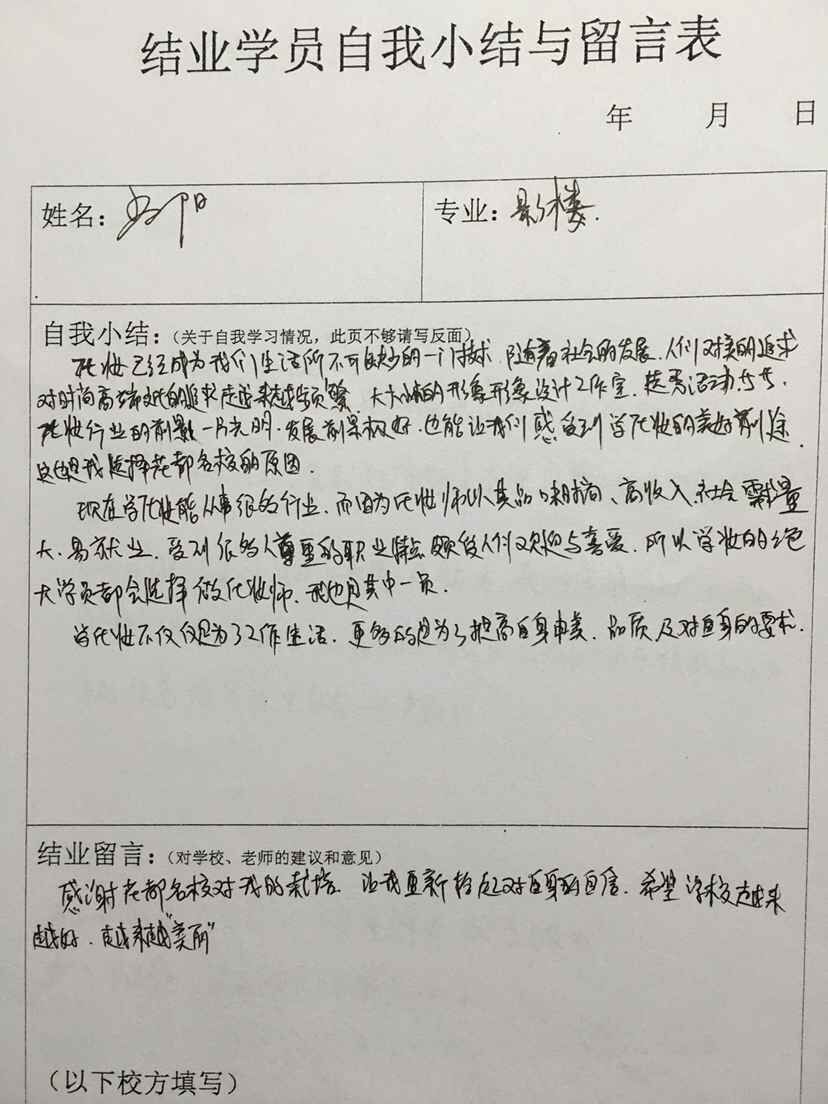 结业学员自我小结与留言表
年 月 日
姓名：阳
专业：影楼.
自我小结：（关于自我学习情况，此页不够请写反面）
化妆已经成为我们生活所不可缺少的一门技术.随着社会的发展.人们对美的追求
对时尚高端文化的追求越来越频繁.大大小小的形象形象设计工作室.选秀活动
化妆行业的前景一片光明.发展前景极好.也能让我们感受到学化妆的美好前途
这也是我选择花都名校的原因.
现在学化妆能从事很的行业.而因为化妆师以其品味时尚、高收入、社会需求量
大、易就业.受到很多人尊重的职业特点颇受人们欢迎与喜爱.所以学妆的
大学员都会选择做化妆师.我也是其中一员.
学化妆不仅仅是为了工作生活.更多的是为了提高自身审美、品质及对自身的要求.
结业留言：（对学校、老师的建议和意见）
感谢花都名校对我的栽培.让我重新拾起对自身的自信.希望学校越来
越好.越来越"美丽"
（以下校方填写）